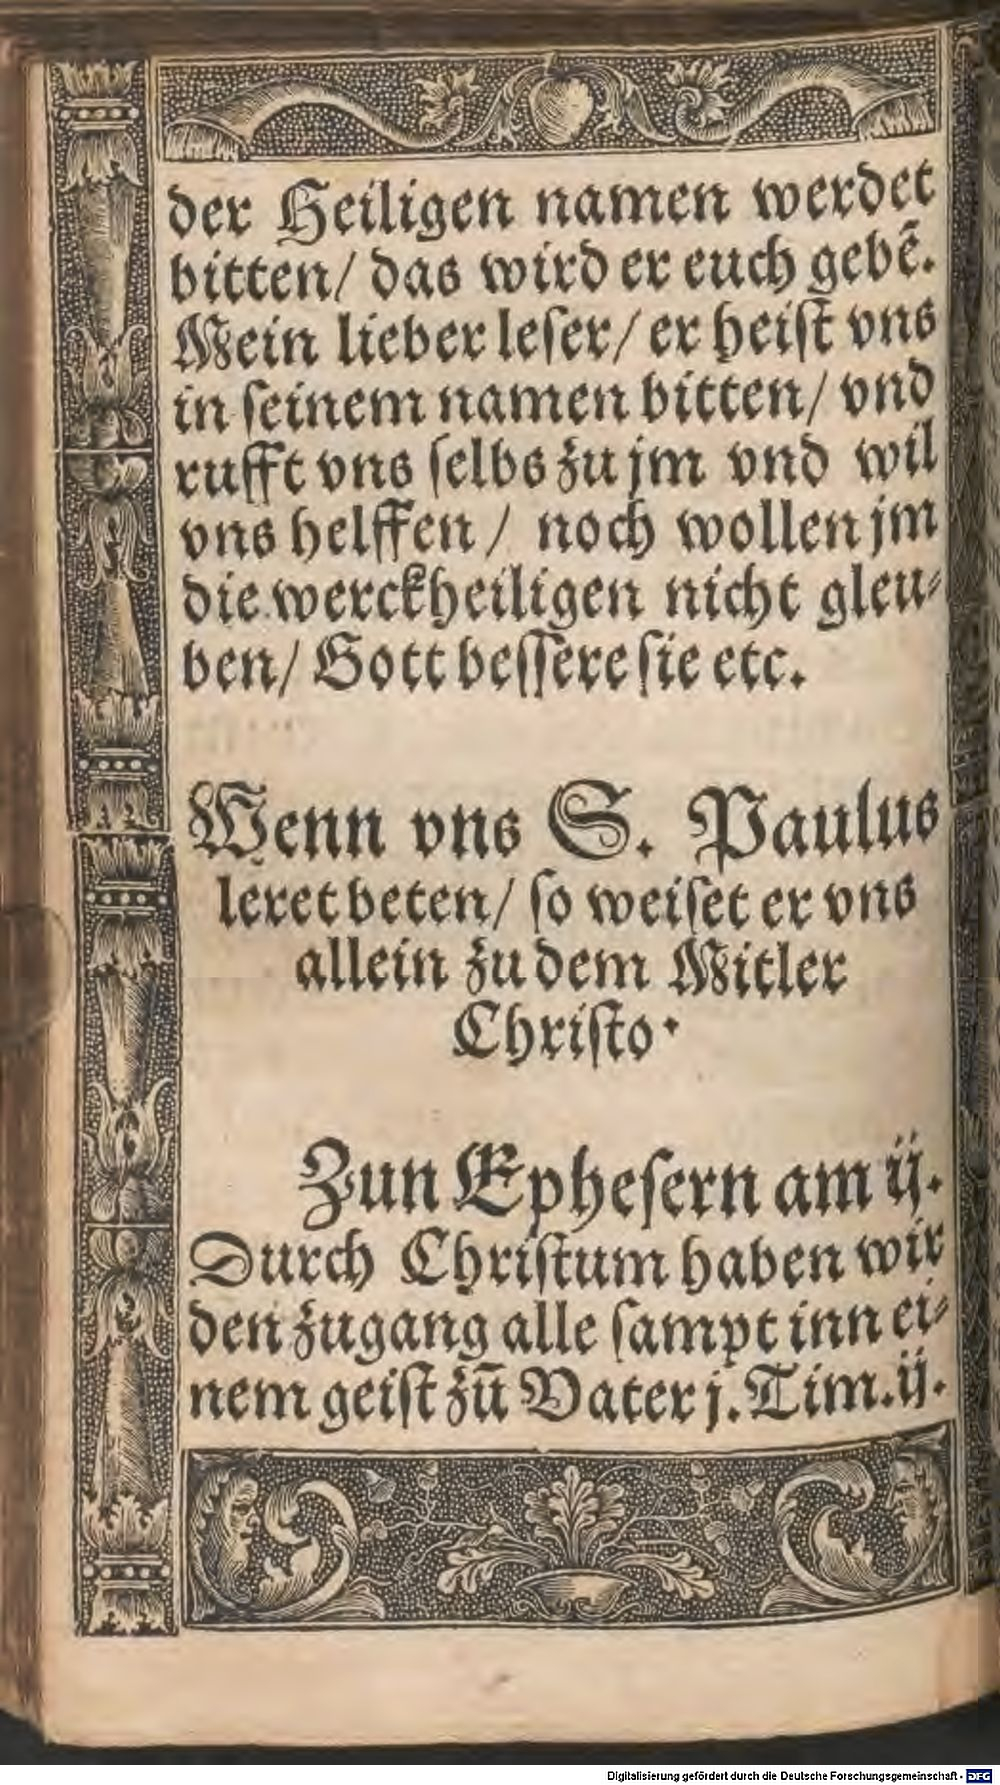 der Heiligen namen werdet
bitten/ das wird er euch gebẽ.
Mein lieber leſer/ er heiſt vns
in ſeinem namen bitten/ vnd
rufft vns ſelbs zu jm vnd wil
vns helffen/ noch wollen jm
die werckheiligen nicht gleu⸗
ben/ Gott beſſere ſie etc.
Wenn vns S. Paulus
leret beten/ ſo weiſet er vns
allein zu dem Mitler
Chriſto.
Zun Epheſern am ij.
Durch Chriſtum haben wir
den zugang alle ſampt inn ei⸗
nem geiſt zũ Vater j. Tim. ij.
Digitalisierung gefördert durch die Deutsche Forschungsgemeinschaft - DFG